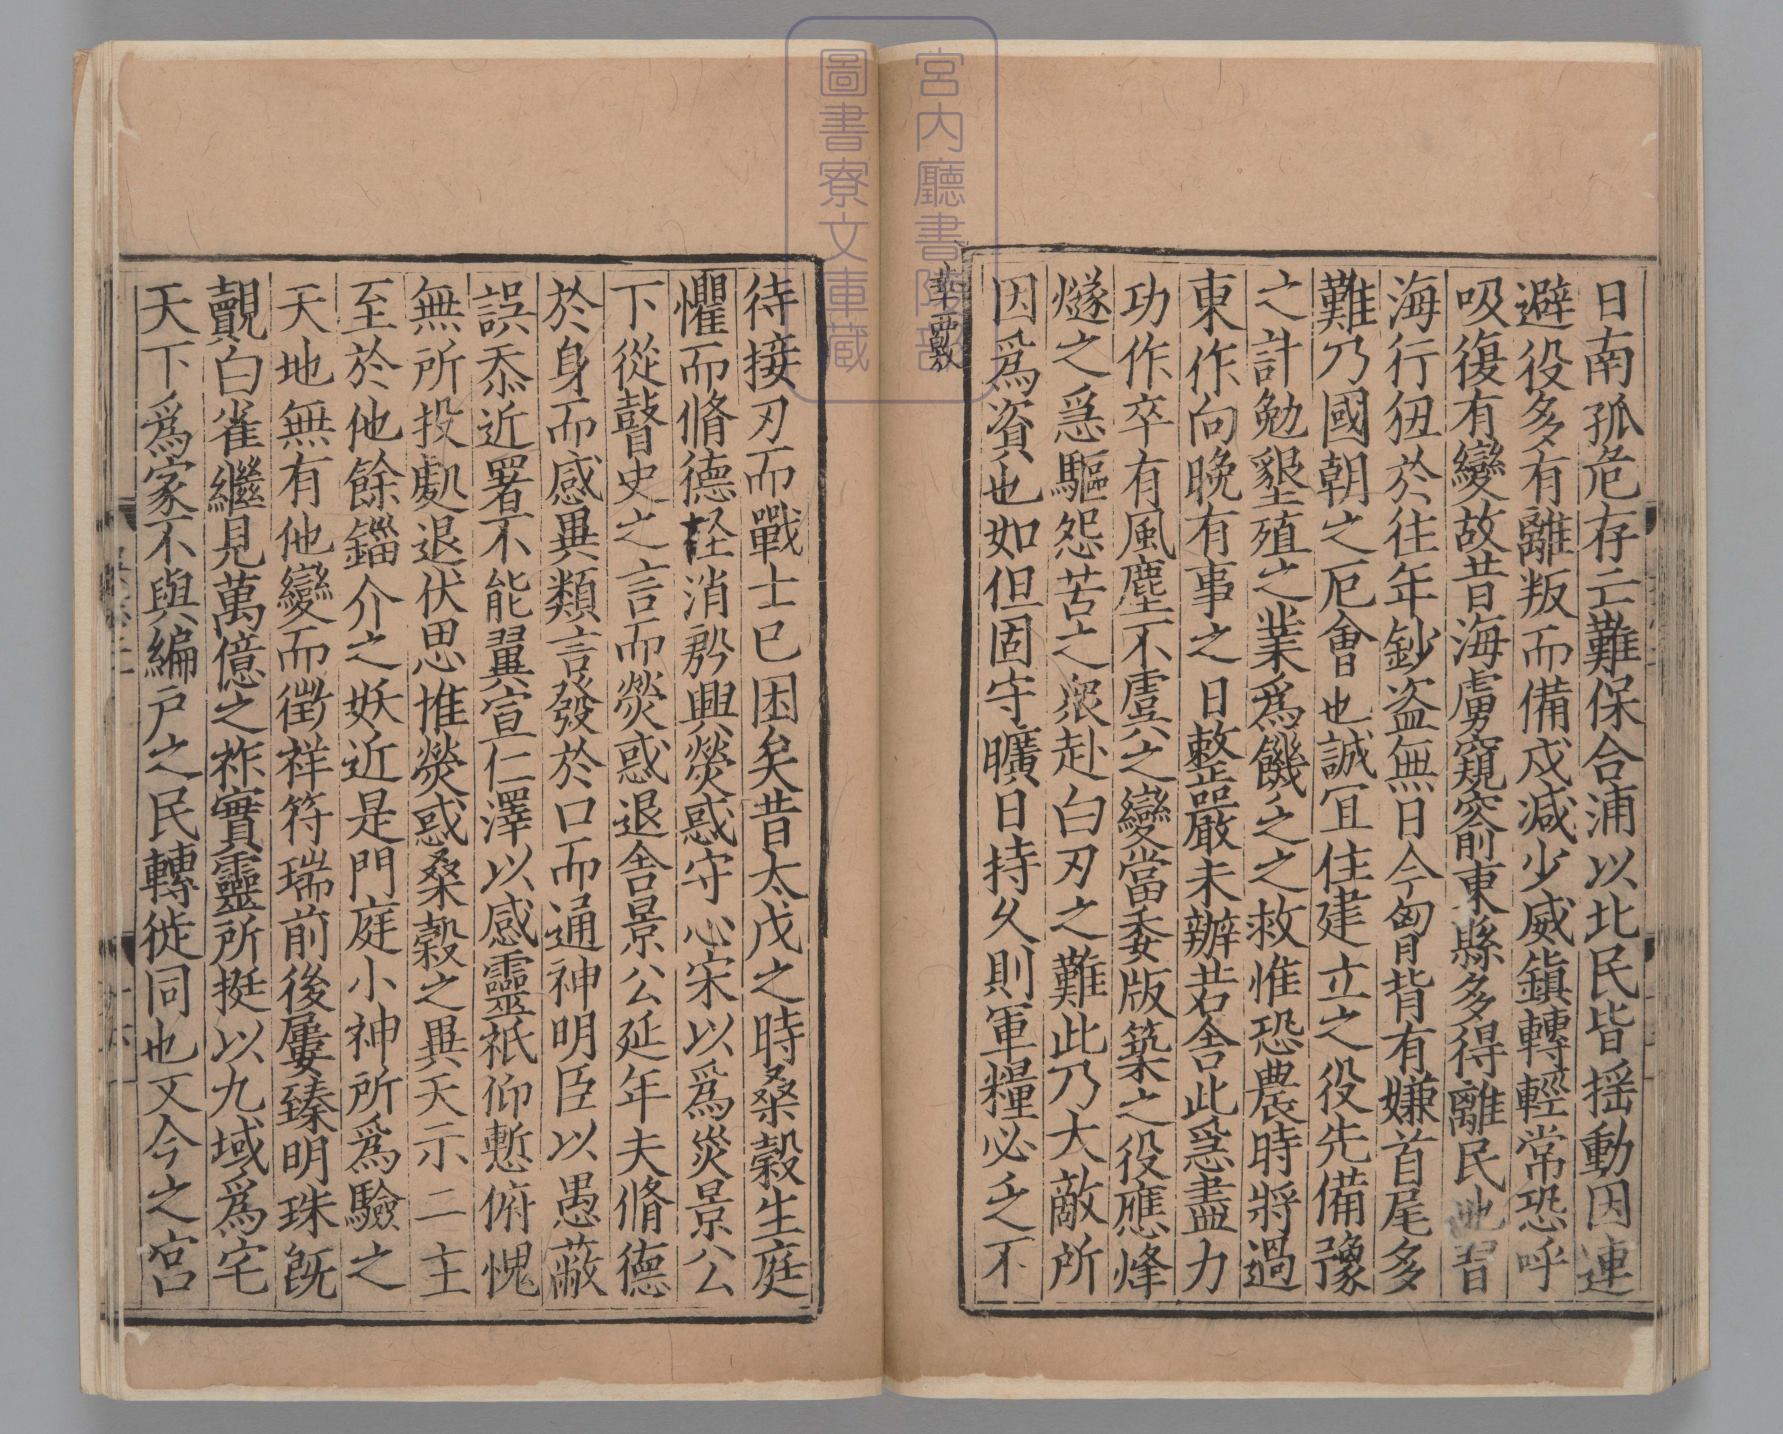 日南孤危存亡難保合浦以北民皆揺動因連
避役多有離叛而備戍減少威鎮轉輕常恐呼
吸復有變故昔海虜窺窬東縣多得離民地習
海行狃於往年鈔盗無日今匈背有嫌首尾多
難乃國朝之厄會也誠冝住建立之役先備豫
之計勉墾殖之業爲饑乏之救惟恐農時將過
東作向晚有事之日整嚴未辦若舍此急盡力
功作卒有風塵不虞之變當委版築之役應烽
燧之急驅怨苦之衆赴白刃之難此乃大敵所
因爲資也如但固守曠日持久則軍糧必乏不
華覈
待接刃而戰士已困矣昔太戊之時桑榖生庭
懼而脩德怪消殷興熒惑守心宋以爲災景公
下從瞽史之言而熒惑退舎景公延年夫脩德
於身而感異類言發於口而通神明臣以愚蔽
誤忝近署不能翼宣仁澤以感靈祇仰慙俯愧
無所投處退伏思惟熒惑桑榖之異天示二主
至於他餘錙介之妖近是門庭小神所爲驗之
天地無有他變而徵祥符瑞前後屢臻明珠旣
覿白雀繼見萬億之祚實靈所挺以九域爲宅
天下爲家不與編戸之民轉徙同也又今之宮
宮内廳書陵部
圖書寮文庫蔵